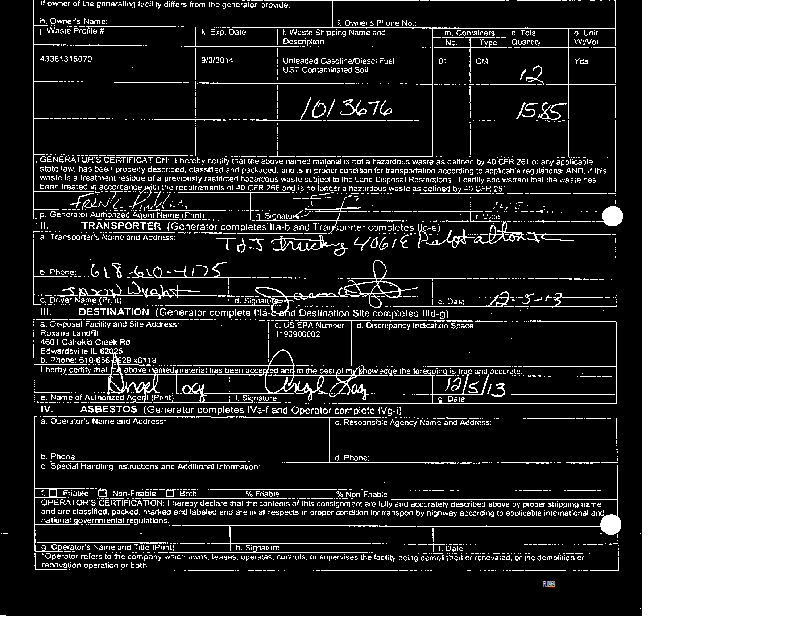 If owner of the generating facility differs from the generator, provide:
h. Owner's Name: i. Owner's Phone No.:
j. Waste Profile # k. Exp. Date l. Waste Shipping Name and Description m. Containers No. Type n. Total Quantity o. Unit Wt/Vol
9/3/2014 Unleaded Gasoline/Diesel Fuel UST Contaminated Soil 01 CM 12 Yds
1013676 1585
GENERATOR'S CERTIFICATION: I hereby certify that the above named material is not a hazardous waste as defined by 40 CFR 261 or any applicable
state law, has been properly described, classified and packaged, and is in proper condition for transportation according to applicable regulations; AND, if this
waste is a treatment residue of a previously restricted hazardous waste subject to the Land Disposal Restrictions. I certify and warrant that the waste has
been treated in accordance with the requirements of 40 CFR 268 and is no longer a hazardous waste as defined by 40 CFR 261
p. Generator Authorized Agent Name (Print) q. Signature r. Date
II. TRANSPORTER (Generator completes IIa-b and Transporter completes IIc-e)
a. Transporter's Name and Address: Trucking
b. Phone: 618-610-4175
c. Driver Name (Print) d. Signature e. Date 12-5-13
III. DESTINATION (Generator complete IIIa-c and Destination Site completes IIId-g)
a. Disposal Facility and Site Address: c. US EPA Number d. Discrepancy Indication Space
Roxana Landfill
4601 Cahokia Creek Rd
Edwardsville IL 62025
b. Phone:
I herby certify that the above named material has been accepted and to the best of my knowledge the foregoing is true and accurate.
Angel 12/5/13
e. Name of Authorized Agent (Print) f. Signature g. Date
IV. ASBESTOS (Generator completes IVa-f and Operator complete IVg-i)
a. Operator's Name and Address: c. Responsible Agency Name and Address:
b. Phone d. Phone:
e. Special Handling Instructions and Additional Information:
f. Friable Non-Friable Both % Friable % Non-Friable
OPERATOR'S CERTIFICATION: I hereby declare that the contents of this consignment are fully and accurately described above by proper shipping name
and are classified, packed, marked and labeled and are in all respects in proper condition for transport by highway according to applicable international and
national governmental regulations.
g. Operator's Name and Title (Print) h. Signature i. Date
*Operator refers to the company which owns, leases, operates, controls, or supervises the facility being demolished or renovated, or the demolition or
renovation operation or both